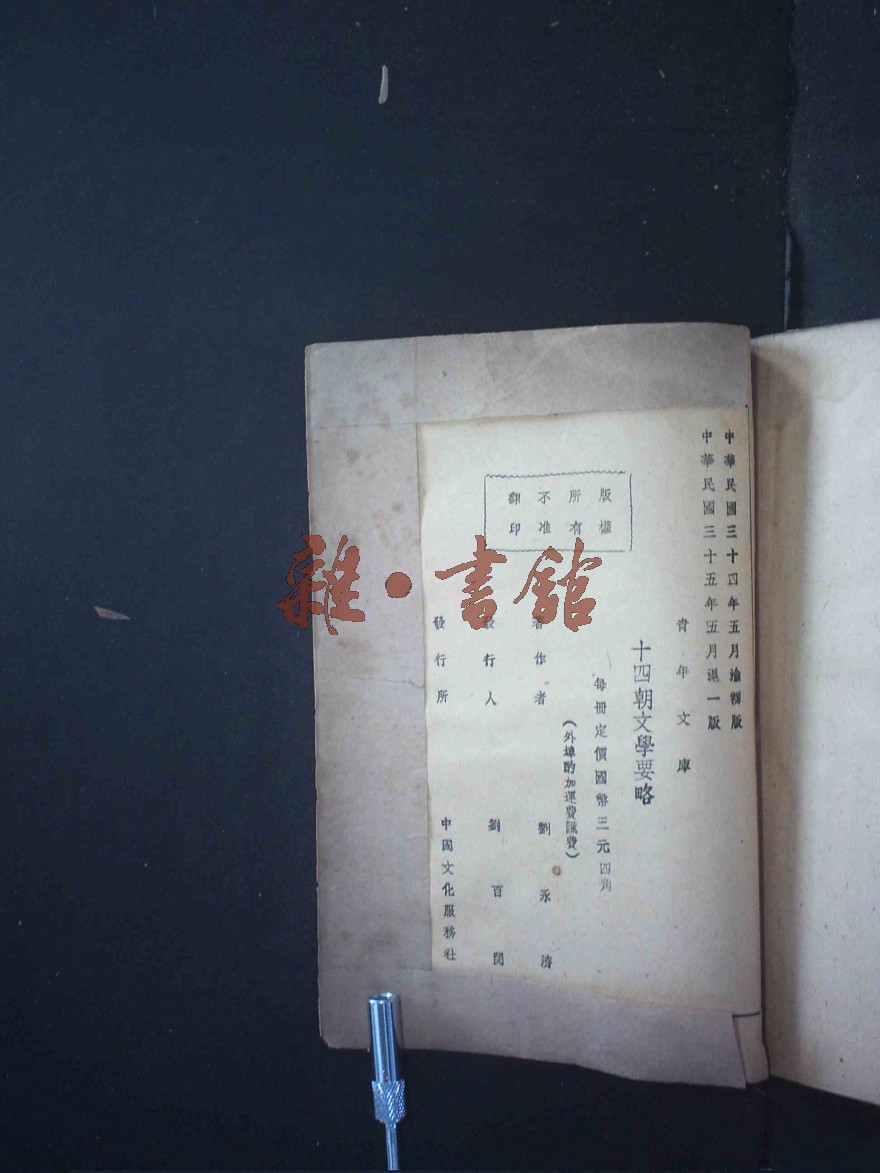 中華民國三十四年五月渝初版
中華民國三十五年五月滬一版
青年文庫
十四朝文學要略
每冊定價國幣三元四角
(外埠酌加運費匯費)
著作者 劉永濟
發行人 劉百閔
發行所 中國文化服務社
版權
所有
不准
翻印
雜·書館